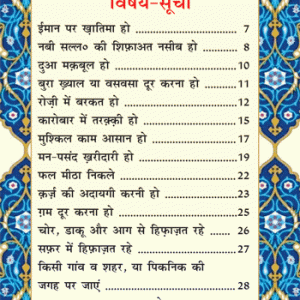 विषय-सूची
ईमान पर ख़ातिमा हो ........................ 7
नबी सल्ल० की शिफ़ाअत नसीब हो ....... 8
दुआ मक़्बूल हो ........................ 10
बुरा ख़्याल या वसवसा दूर करना हो ..... 11
रोज़ी में बरकत हो ........................ 12
कारोबार में तरक़्क़ी हो .................. 15
मुश्किल काम आसान हो ................ 17
मन-पसंद ख़रीदारी हो ................... 19
फल मीठा निकले ........................ 22
क़र्ज़ की अदायगी करनी हो ............. 23
ग़म दूर करना हो ........................ 25
चोर, डाकू और आग से हिफ़ाज़त रहे ..... 26
सफ़र में हिफ़ाज़त रहे .................... 27
किसी गांव व शहर, या पिकनिक की
जगह पर जाएं ........................ 28